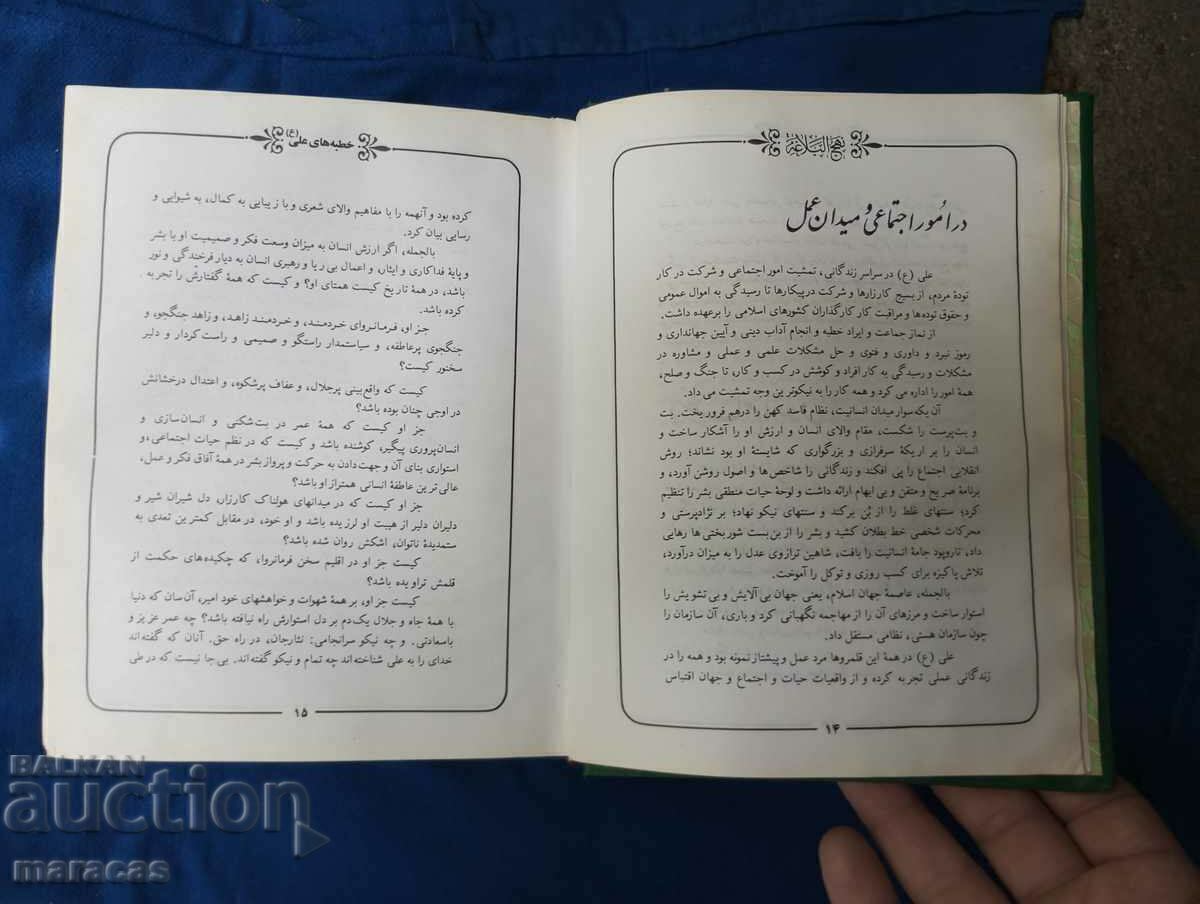 نهج البلاغة
در امور اجتماعی و میدان عمل
علی (ع) در سراسر زندگانی، تمشیت امور اجتماعی و شرکت در کار
تودهٔ مردم، از بسیج کارزارها و شرکت در پیکارها تا رسیدگی به اموال عمومی
و حقوق توده‌ها و مراقبت کار کارگذاران کشورهای اسلامی را برعهده داشت.
از نماز جماعت و ایراد خطبه و انجام آداب دینی و آیین جهانداری و
رموز نبرد و داوری و فتوی و حل مشکلات علمی و عملی و مشاوره در
مشکلات و رسیدگی به کار افراد و کوشش در کسب و کار، تا جنگ و صلح،
همهٔ امور را اداره می کرد و همه کار را به نیکوترین وجه تمشیت می داد.
آن یکه سوار میدان انسانیت، نظام فاسد کهن را درهم فرو ریخت. بت
و بت‌پرست را شکست، مقام والای انسان و ارزش او را آشکار ساخت و
انسان را بر اریکهٔ سرفرازی و بزرگواری که شایستهٔ او بود نشاند؛ روش
انقلابی اجتماع را پی افکند و زندگانی را شاخص‌ها و اصول روشن آورد، و
برنامهٔ صریح و متقن و بی ابهام ارائه داشت و لوحهٔ حیات منطقی بشر را تنظیم
کرد؛ سنتهای غلط را از بُن برکند و سنتهای نیکو نهاد؛ بر نژادپرستی و
محرکات شخصی خط بطلان کشید و بشر را از بن‌بست شوربختی ها رهایی
داد، تاروپود جامهٔ انسانیت را بافت، شاهین ترازوی عدل را به میزان درآورد،
تلاش پاکیزه برای کسب روزی و توکل را آموخت.
بالجمله، عاصمهٔ جهان اسلام، یعنی جهان بی آلایش و بی تشویش را
استوار ساخت و مرزهای آن را از مهاجمه نگهبانی کرد و باری، آن سازمان را
چون سازمان هستی، نظامی مستقل داد.
علی (ع) در همهٔ این قلمروها مرد عمل و پیشتاز نمونه بود و همه را در
زندگانی عملی تجربه کرده و از واقعیات حیات و اجتماع و جهان اقتباس
۱۴
خطبه های علی (ع)
کرده بود و آنهمه را با مفاهیم والای شعری و با زیبایی به کمال، به شیوایی و
رسایی بیان کرد.
بالجمله، اگر ارزش انسان به میزان وسعت فکر و صمیمیت او با بشر
و پایهٔ فداکاری و ایثار، و اعمال بی ریا و رهبری انسان به دیار فرخندگی و نور
باشد، در همهٔ تاریخ کیست همتای او؟ و کیست که همهٔ گفتارش را تجربه
کرده باشد.
جز او، فرمانروای خردمند، و خردمند زاهد، و زاهد جنگجو، و
جنگجوی پرعاطفه، و سیاستمدار راستگو و صمیمی و راست کردار و دلیر
سخنور کیست؟
کیست که واقع بینی پرجلال، و عفاف پرشکوه، و اعتدال درخشانش
در اوجی چنان بوده باشد؟
جز او کیست که همهٔ عمر در بت‌شکنی و انسان‌سازی و
انسان‌پروری پیگیر، کوشنده باشد و کیست که در نظم حیات اجتماعی، و
استواری بنای آن و جهت دادن به حرکت و پرواز بشر در همهٔ آفاق فکر و عمل،
عالی ترین عاطفهٔ انسانی همتراز او باشد؟
جز او کیست که در میدانهای هولناک کارزار، دل شیران شیر و
دلیران دلیر از هیبت او لرزیده باشد و او خود، در مقابل کمترین تعدی به
ستمدیدهٔ ناتوان، اشکش روان شده باشد؟
کیست جز او در اقلیم سخن فرمانروا، که چکیده‌های حکمت از
قلمش تراویده باشد؟
کیست جز او، بر همهٔ شهوات و خواهشهای خود امیر، آن‌سان که دنیا
با همهٔ جاه و جلال یک دم بر دل استوارش راه نیافته باشد؟ چه عمر عزیز و
باسعادتی. و چه نیکو سرانجامی: نثار جان، در راه حق. آنان که گفته‌اند
خدای را به علی شناخته‌اند چه تمام و نیکو گفته‌اند. بی‌جا نیست که در طی
۱۵
BALKAN
auction
maracas